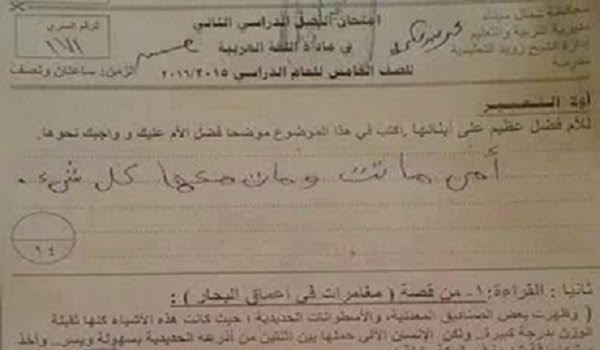 محافظة شمال سيناء
مديرية التربية والتعليم
إدارة الشيخ زويد التعليمية
مدرسة
امتحان الفصل الدراسي الثاني
في مادة اللغة العربية
للصف الخامس للعام الدراسي ٢٠١٦/٢٠١٥
الرقم السري
الزمن: ساعتان ونصف
أولا التعبير
للأم فضل عظيم على أبنائها. اكتب في هذا الموضوع موضحا فضل الأم عليك و واجبك نحوها.
أمي ماتت ومات معها كل شيء.
١٤
ثانيا : القراءة: ١- من قصة ( مغامرات في أعماق البحار ) :
( وظهرت بعض الصناديق المعدنية، والأسطوانات الحديدية ؛ حيث كانت هذه الأشياء كلها ثقيلة
الوزن بدرجة كبيرة.. ولكن الإنسان الآلي حملها بين اثنتين من أذرعه الحديدية بسهولة ويسر.. وأخذ